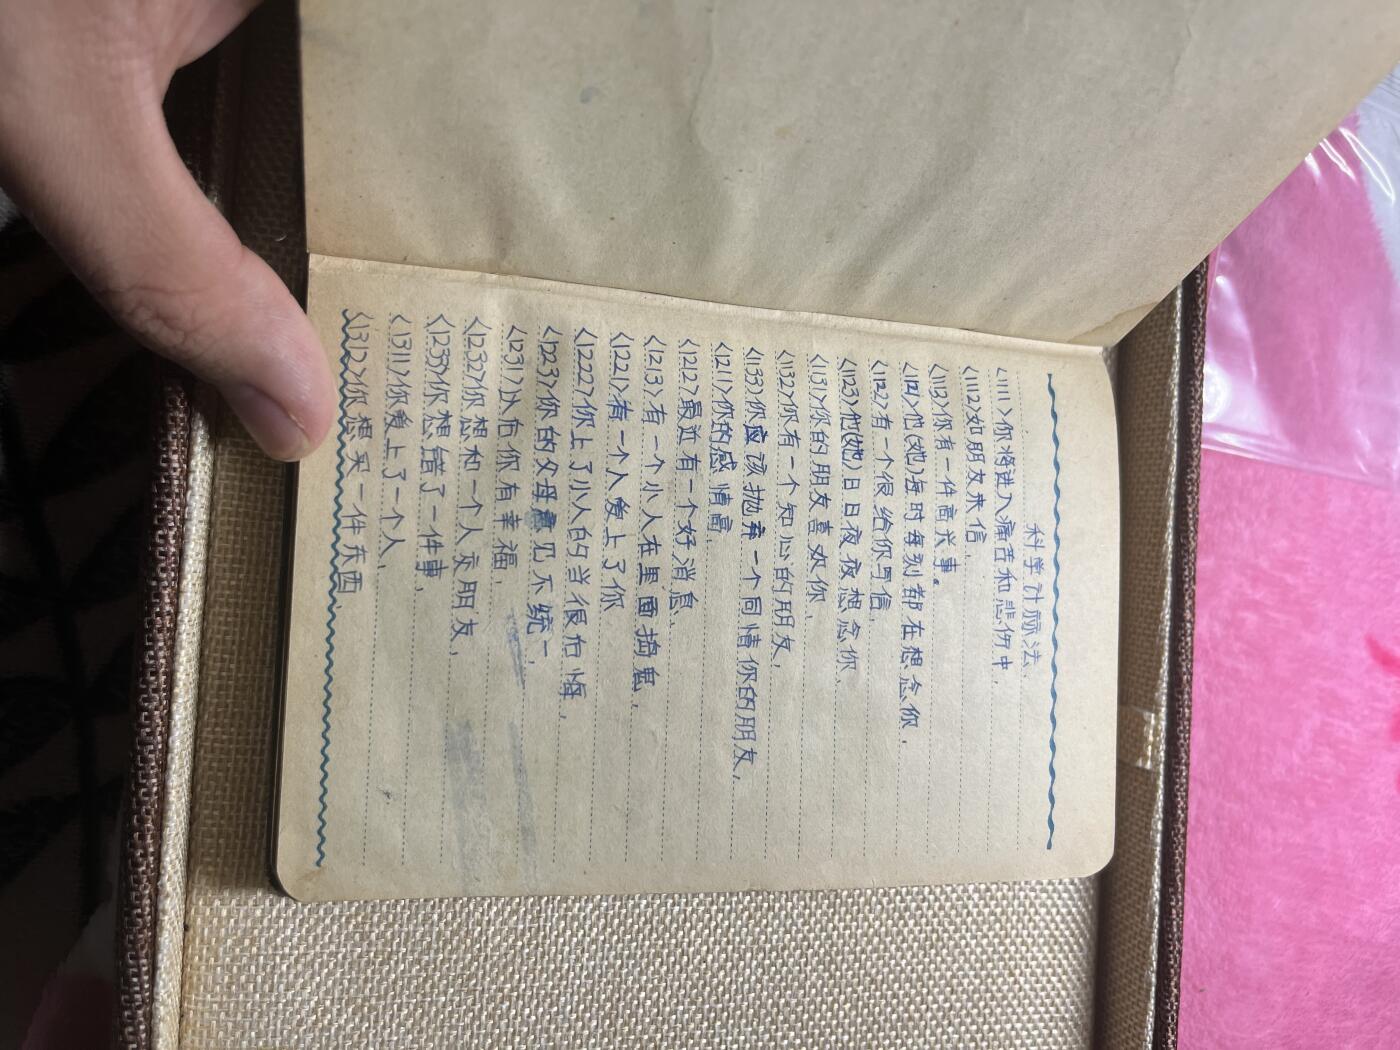 科学计算法.
<1111>你将进入痛苦和悲伤中.
<1112>如朋友来信.
<1113>你有一件高兴事。
<1121>他(她)每时每刻都在想念你.
<1122>有一个很给你写信.
<1123>他(她)日日夜夜想念你.
<1131>你的朋友喜欢你.
<1132>你有一个知心的朋友.
<1133>你应该抛弃一个同情你的朋友.
<1211>你的感情高.
<1212>最近有一个好消息.
<1213>有一个小人在里面捣鬼.
<1221>有一个人爱上了你
<1222>你上了小人的当很后悔.
<1223>你的父母意见不统一.
<1231>以后你有幸福.
<1232>你想和一个人交朋友.
<1233>你想错了一件事.
<1311>你爱上了一个人.
<1312>你想买一件东西.